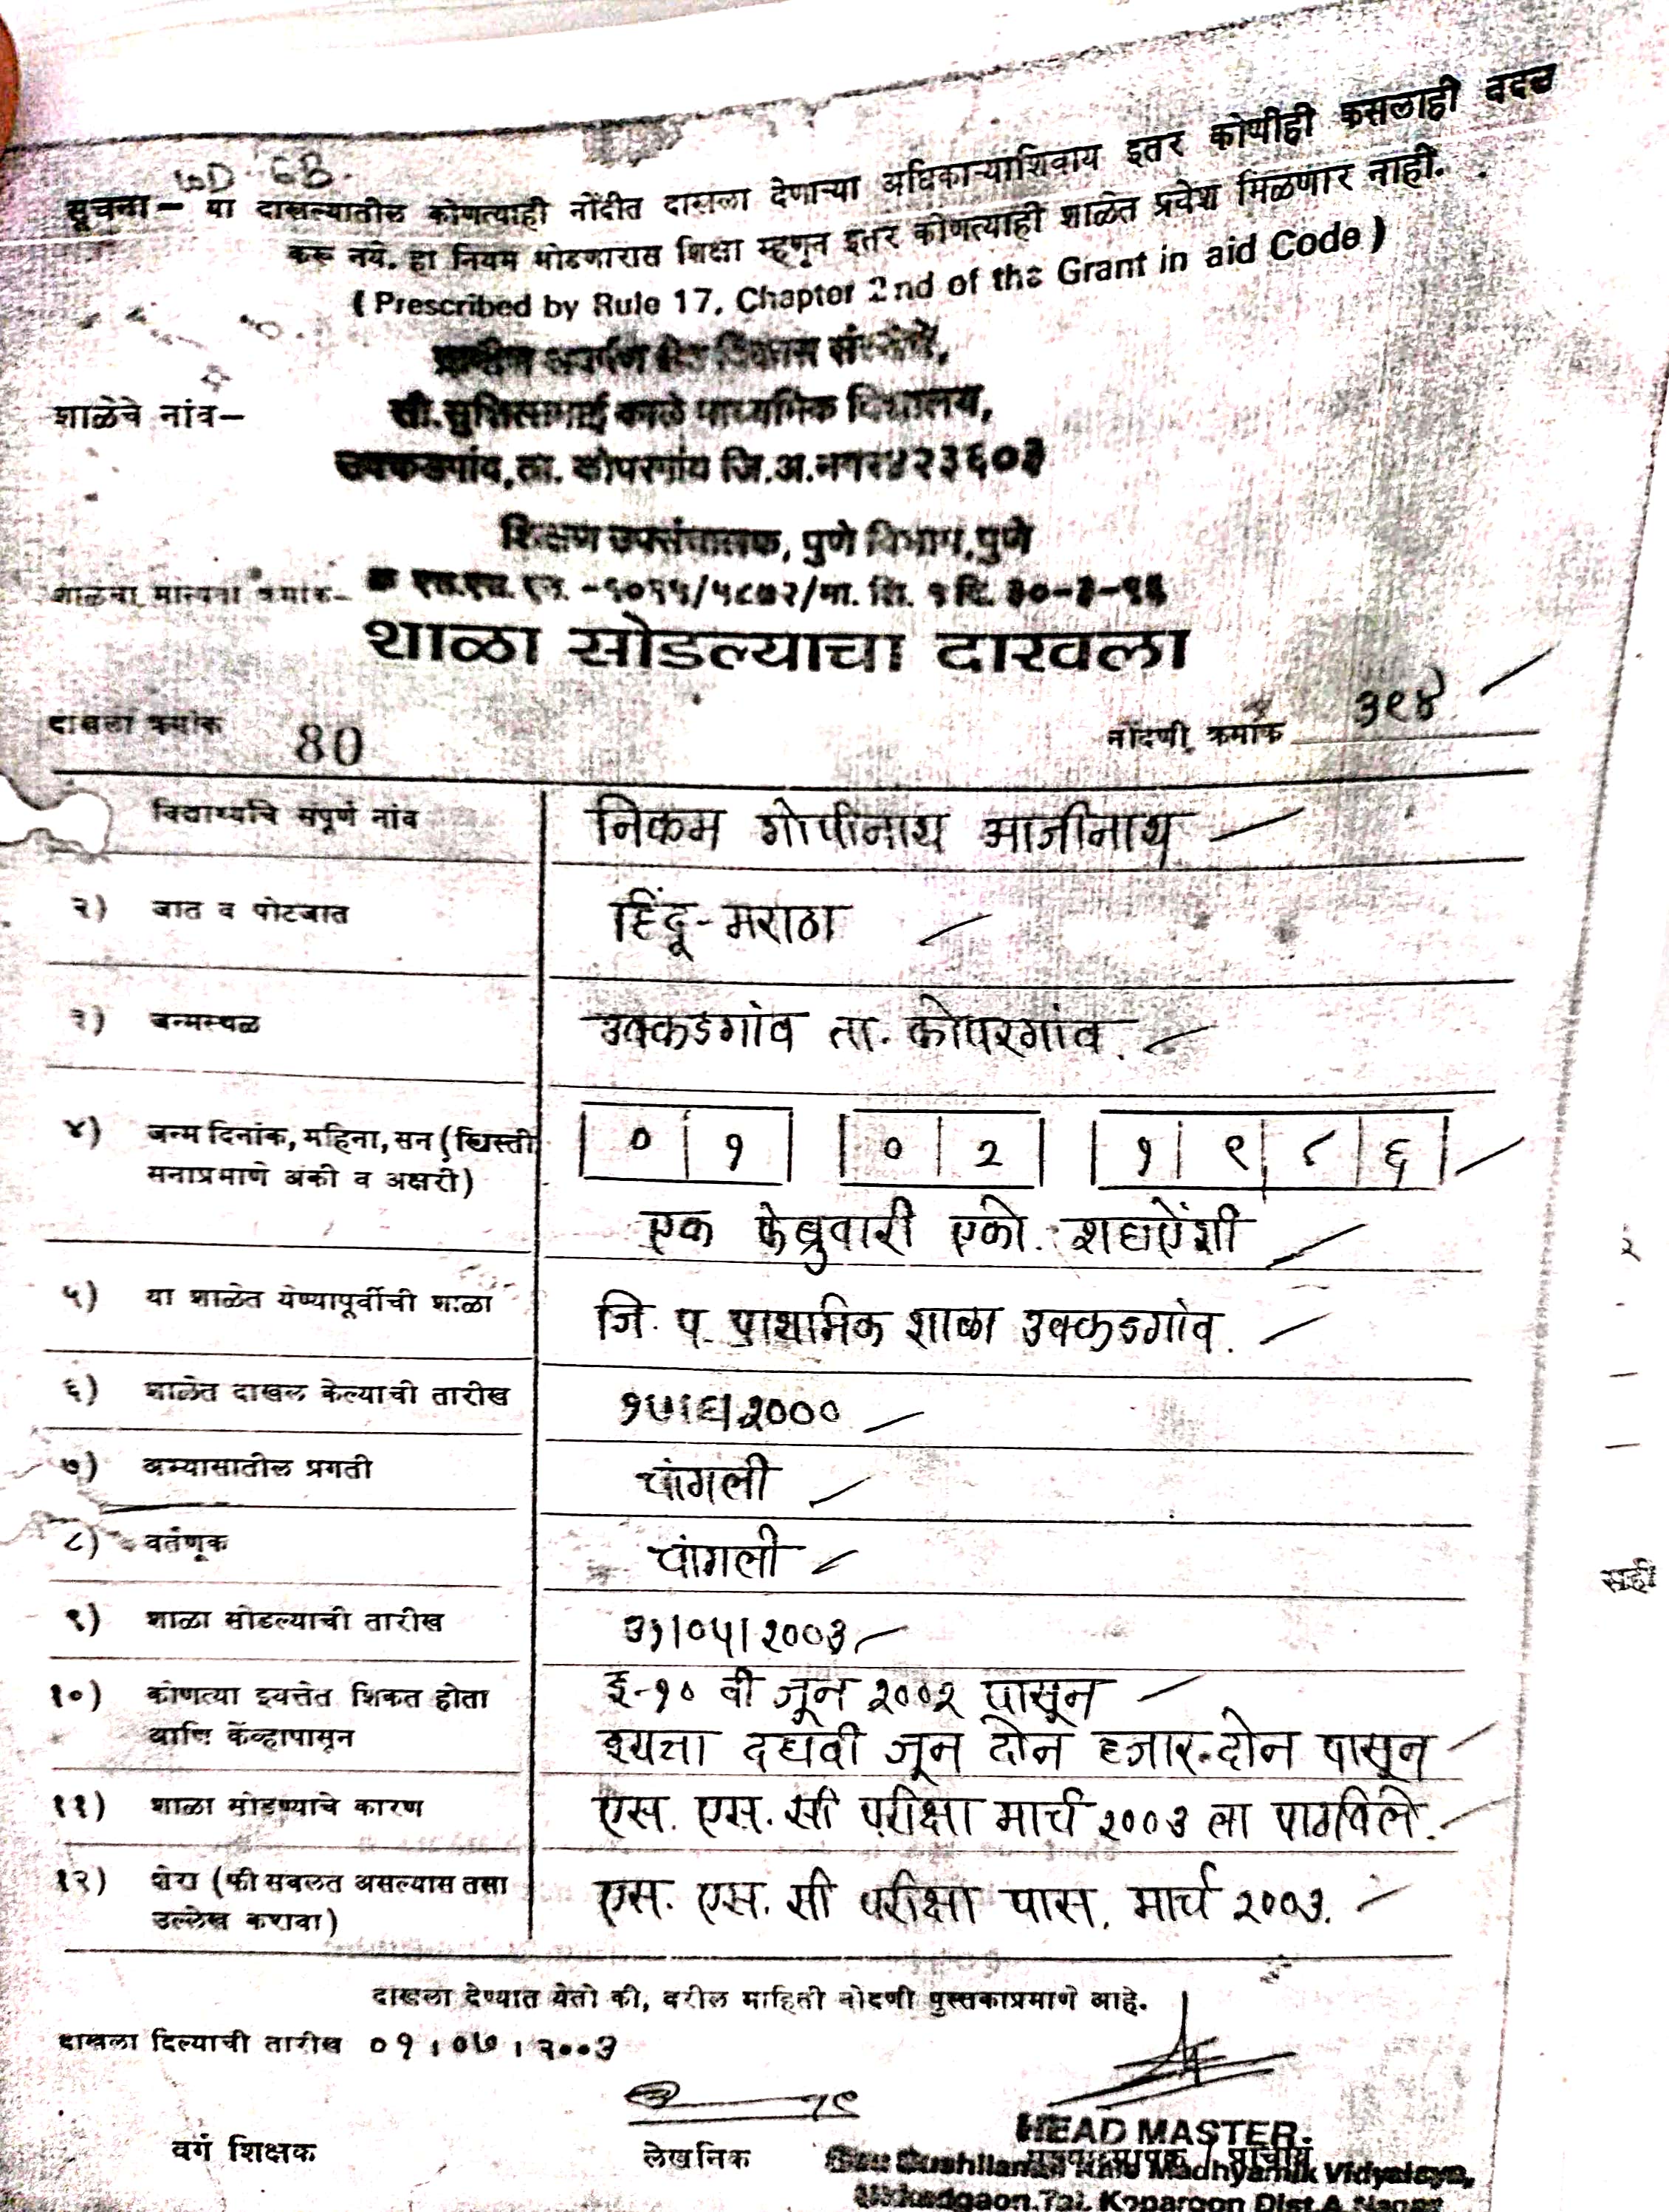 सूचना – या दाखल्यातील कोणत्याही नोंदीत दाखला देणाऱ्या अधिकाऱ्याशिवाय इतर कोणीही कसलाही बदल
करू नये. हा नियम मोडणारास शिक्षा म्हणून इतर कोणत्याही शाळेत प्रवेश मिळणार नाही.
( Prescribed by Rule 17, Chapter 2nd of the Grant in aid Code )
विकास
शाळेचे नांव– सौ. काळे माध्यमिक विद्यालय,
उक्कडगांव, ता. कोपरगांव जि.अ.नगर ४२३६०३
शिक्षण उपसंचालक, पुणे विभाग, पुणे
शाळेचा मान्यता क्रमांक–
शाळा सोडल्याचा दाखला
दाखला क्रमांक 80 नोंदणी क्रमांक ३९४
विद्यार्थ्याचे संपूर्ण नांव निकम गोपीनाथ आजीनाथ
२) जात व पोटजात हिंदू-मराठा
३) जन्मस्थळ उक्कडगांव ता. कोपरगांव.
४) जन्म दिनांक, महिना, सन (ख्रिस्ती ०१ ०२ १९८६
सनाप्रमाणे अंकी व अक्षरी)
एक फेब्रुवारी एको. शहाऐंशी
५) या शाळेत येण्यापूर्वीची शाळा जि. प. प्राथमिक शाळा उक्कडगांव.
६) शाळेत दाखल केल्याची तारीख १७।६।२०००
७) अभ्यासातील प्रगती चांगली
८) वर्तणूक चांगली
९) शाळा सोडल्याची तारीख ३१।०५।२००३
१०) कोणत्या इयत्तेत शिकत होता इ-१० वी जून २००२ पासून
आणि केंव्हापासून इयत्ता दहावी जून दोन हजार दोन पासून
११) शाळा सोडण्याचे कारण एस. एस. सी परीक्षा मार्च २००३ ला पाठविले.
१२) शेरा (फी सवलत असल्यास तसा एस. एस. सी परीक्षा पास. मार्च २००३.
उल्लेख करावा)
दाखला देण्यात येतो की, वरील माहिती नोंदणी पुस्तकाप्रमाणे आहे.
दाखला दिल्याची तारीख ०१।०७।२००३
सही
HEAD MASTER.
वर्ग शिक्षक लेखनिक
Madhyamik Vidyalaya,
Tal. Kopargon Dist.A.Nagar